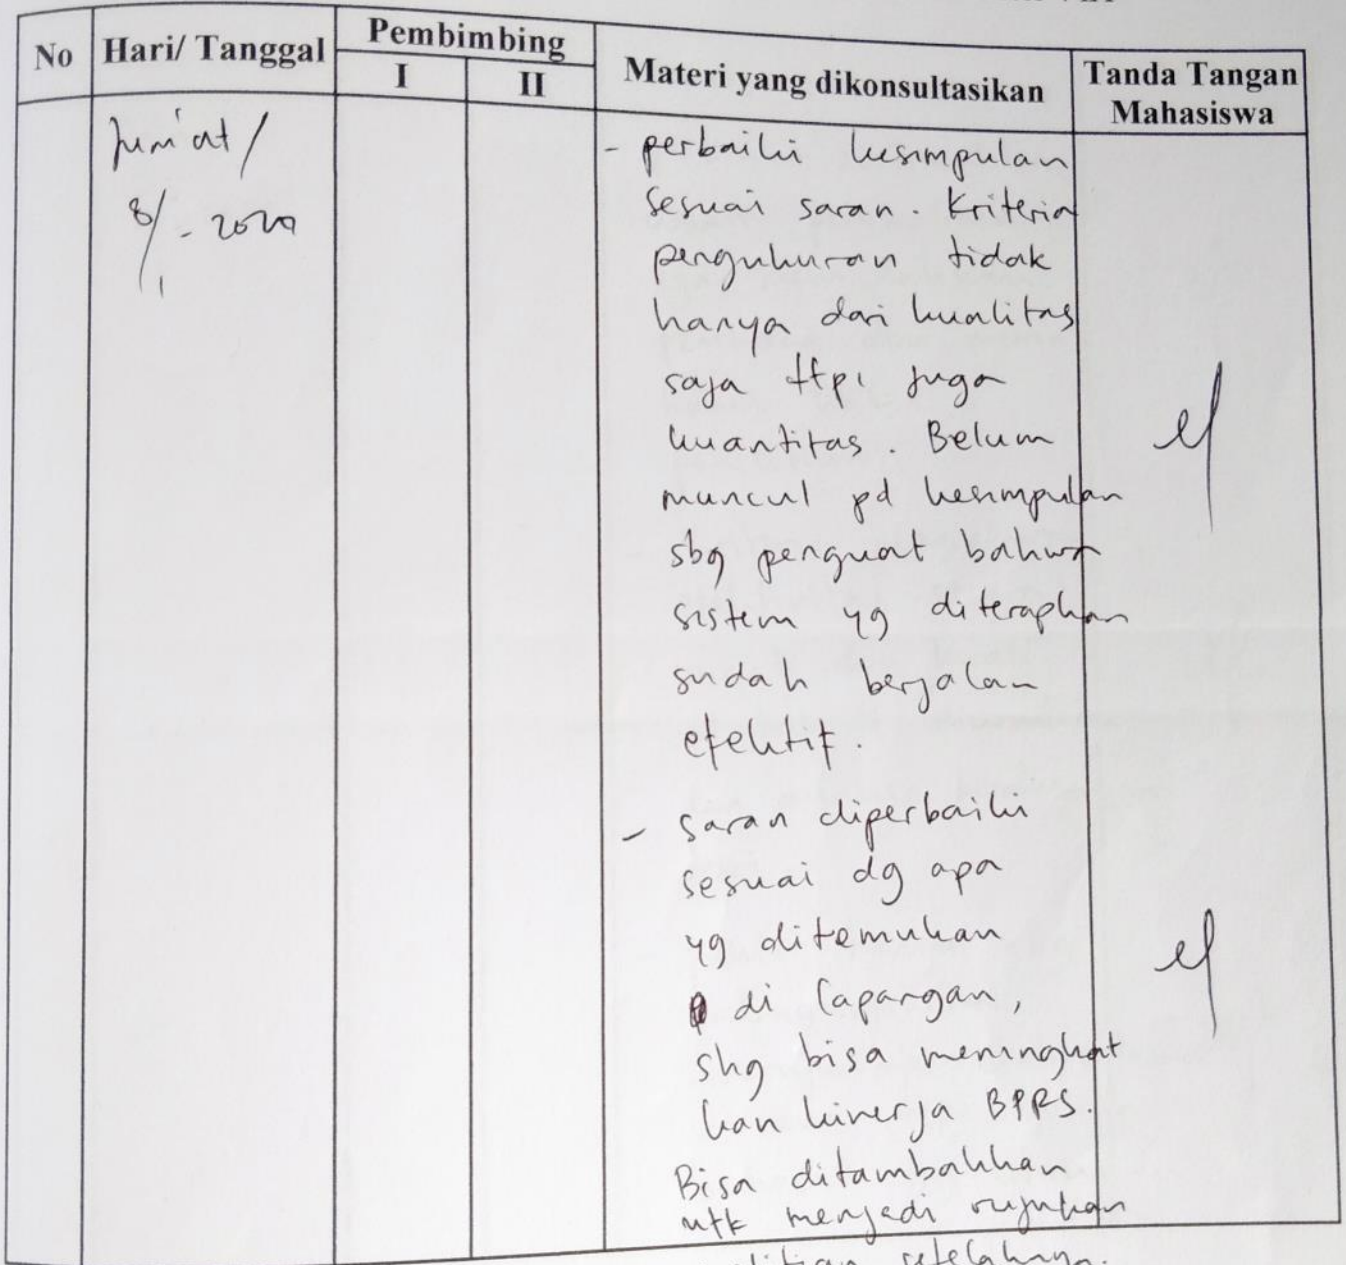 No
Hari/ Tanggal
Pembimbing
I
II
Materi yang dikonsultasikan
Tanda Tangan
Mahasiswa
Jum'at /
8/1 - 2020
- perbaiki kesimpulan
sesuai saran. Kriteria
pengukuran tidak
hanya dari kualitas
saja ttpi juga
kuantitas. Belum
muncul pd kesimpulan
sbg penguat bahwa
sistem yg diterapkan
sudah berjalan
efektif.
- saran diperbaiki
sesuai dg apa
yg ditemukan
di lapangan,
shg bisa meningkat
kan kinerja BPRS.
Bisa ditambahkan
utk menjadi rujukan
setelahnya.